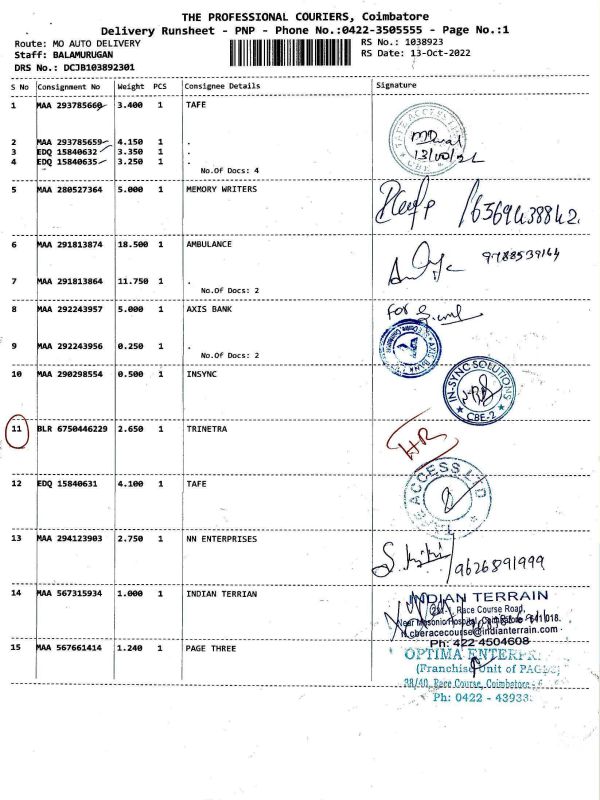 THE PROFESSIONAL COURIERS, Coimbatore
Delivery Runsheet - PNP - Phone No.:0422-3505555 - Page No.:1
Route: MO AUTO DELIVERY
RS No.: 1038923
Staff: BALAMURUGAN
RS Date: 13-Oct-2022
DRS No.: DCJB103892301
S No Consignment No Weight PCS Consignee Details Signature
1 MAA 293785660 3.400 1 TAFE
2 MAA 293785659 4.150 1 .
3 EDQ 15840632 3.350 1 .
4 EDQ 15840635 3.250 1 .
No.Of Docs: 4
5 MAA 280527364 5.000 1 MEMORY WRITERS
6369438842
6 MAA 291813874 18.500 1 AMBULANCE
9788539164
7 MAA 291813864 11.750 1 .
No.Of Docs: 2
8 MAA 292243957 5.000 1 AXIS BANK
For
9 MAA 292243956 0.250 1 .
AXIS BANK
No.Of Docs: 2
10 MAA 290298554 0.500 1 INSYNC
IN-SYNC SOLUTIONS
CBE-2
11 BLR 6750446229 2.650 1 TRINETRA
12 EDQ 15840631 4.100 1 TAFE
ACCESS LTD
13 MAA 294123903 2.750 1 NN ENTERPRISES
9626891999
14 MAA 567315934 1.000 1 INDIAN TERRIAN
INDIAN TERRAIN
Race Course Road,
Near Masonic Hospital, Coimbatore - 641 018.
cberacecourse@indianterrain.com
Ph: 422 4504608
15 MAA 567661414 1.240 1 PAGE THREE
OPTIMA ENTERPR
(Franchise Unit of PAGE
38/40, Race Course, Coimbatore -
Ph: 0422 - 43933